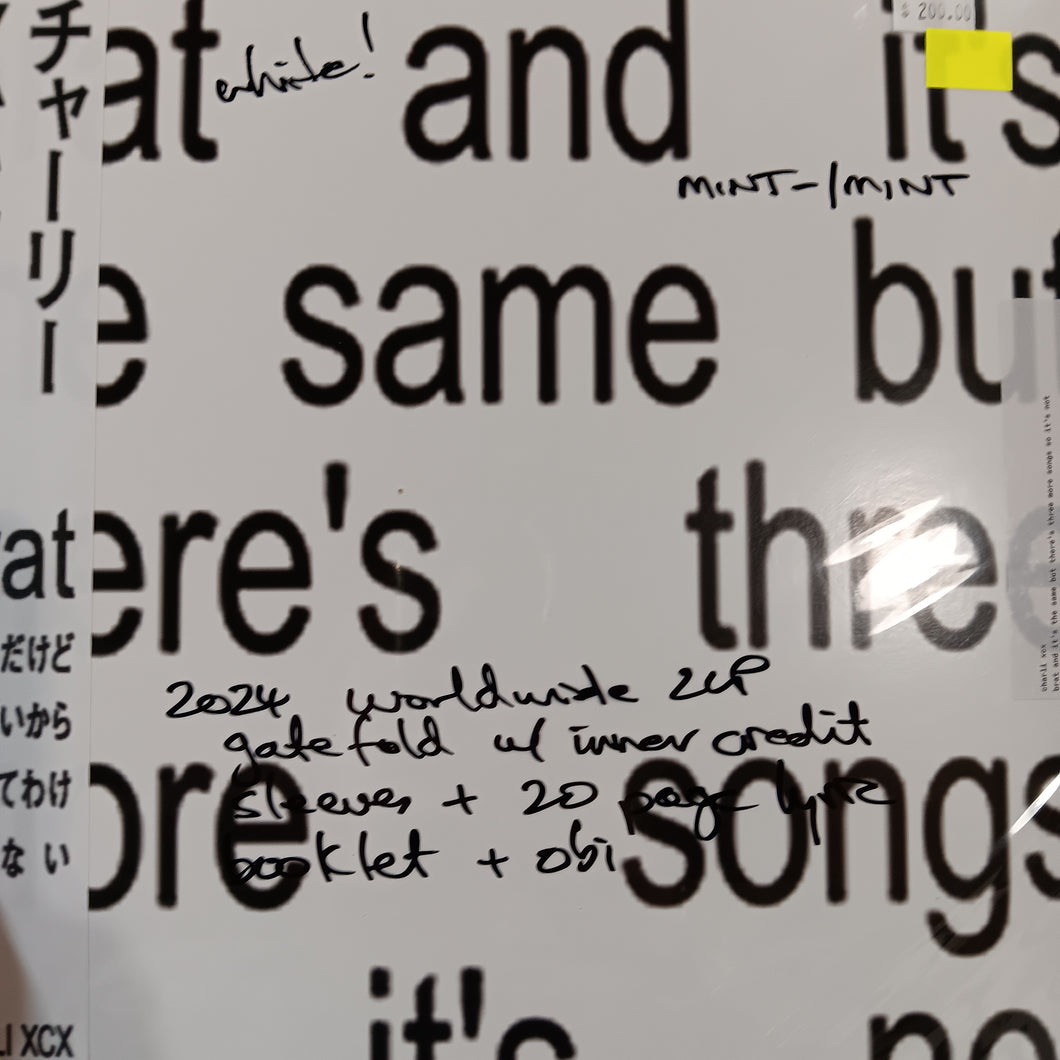 チャーリー
at
だけど
いから
てわけ
ない
LI XCX
$ 200.00
at and it's
white!
MINT-/MINT
e same but
ere's three
2024 worldwide 2LP
gatefold w/ inner credit
sleeves + 20 page lyric
booklet + obi
ore songs
it's no
charli xcx
brat and it's the same but there's three more songs so it's not